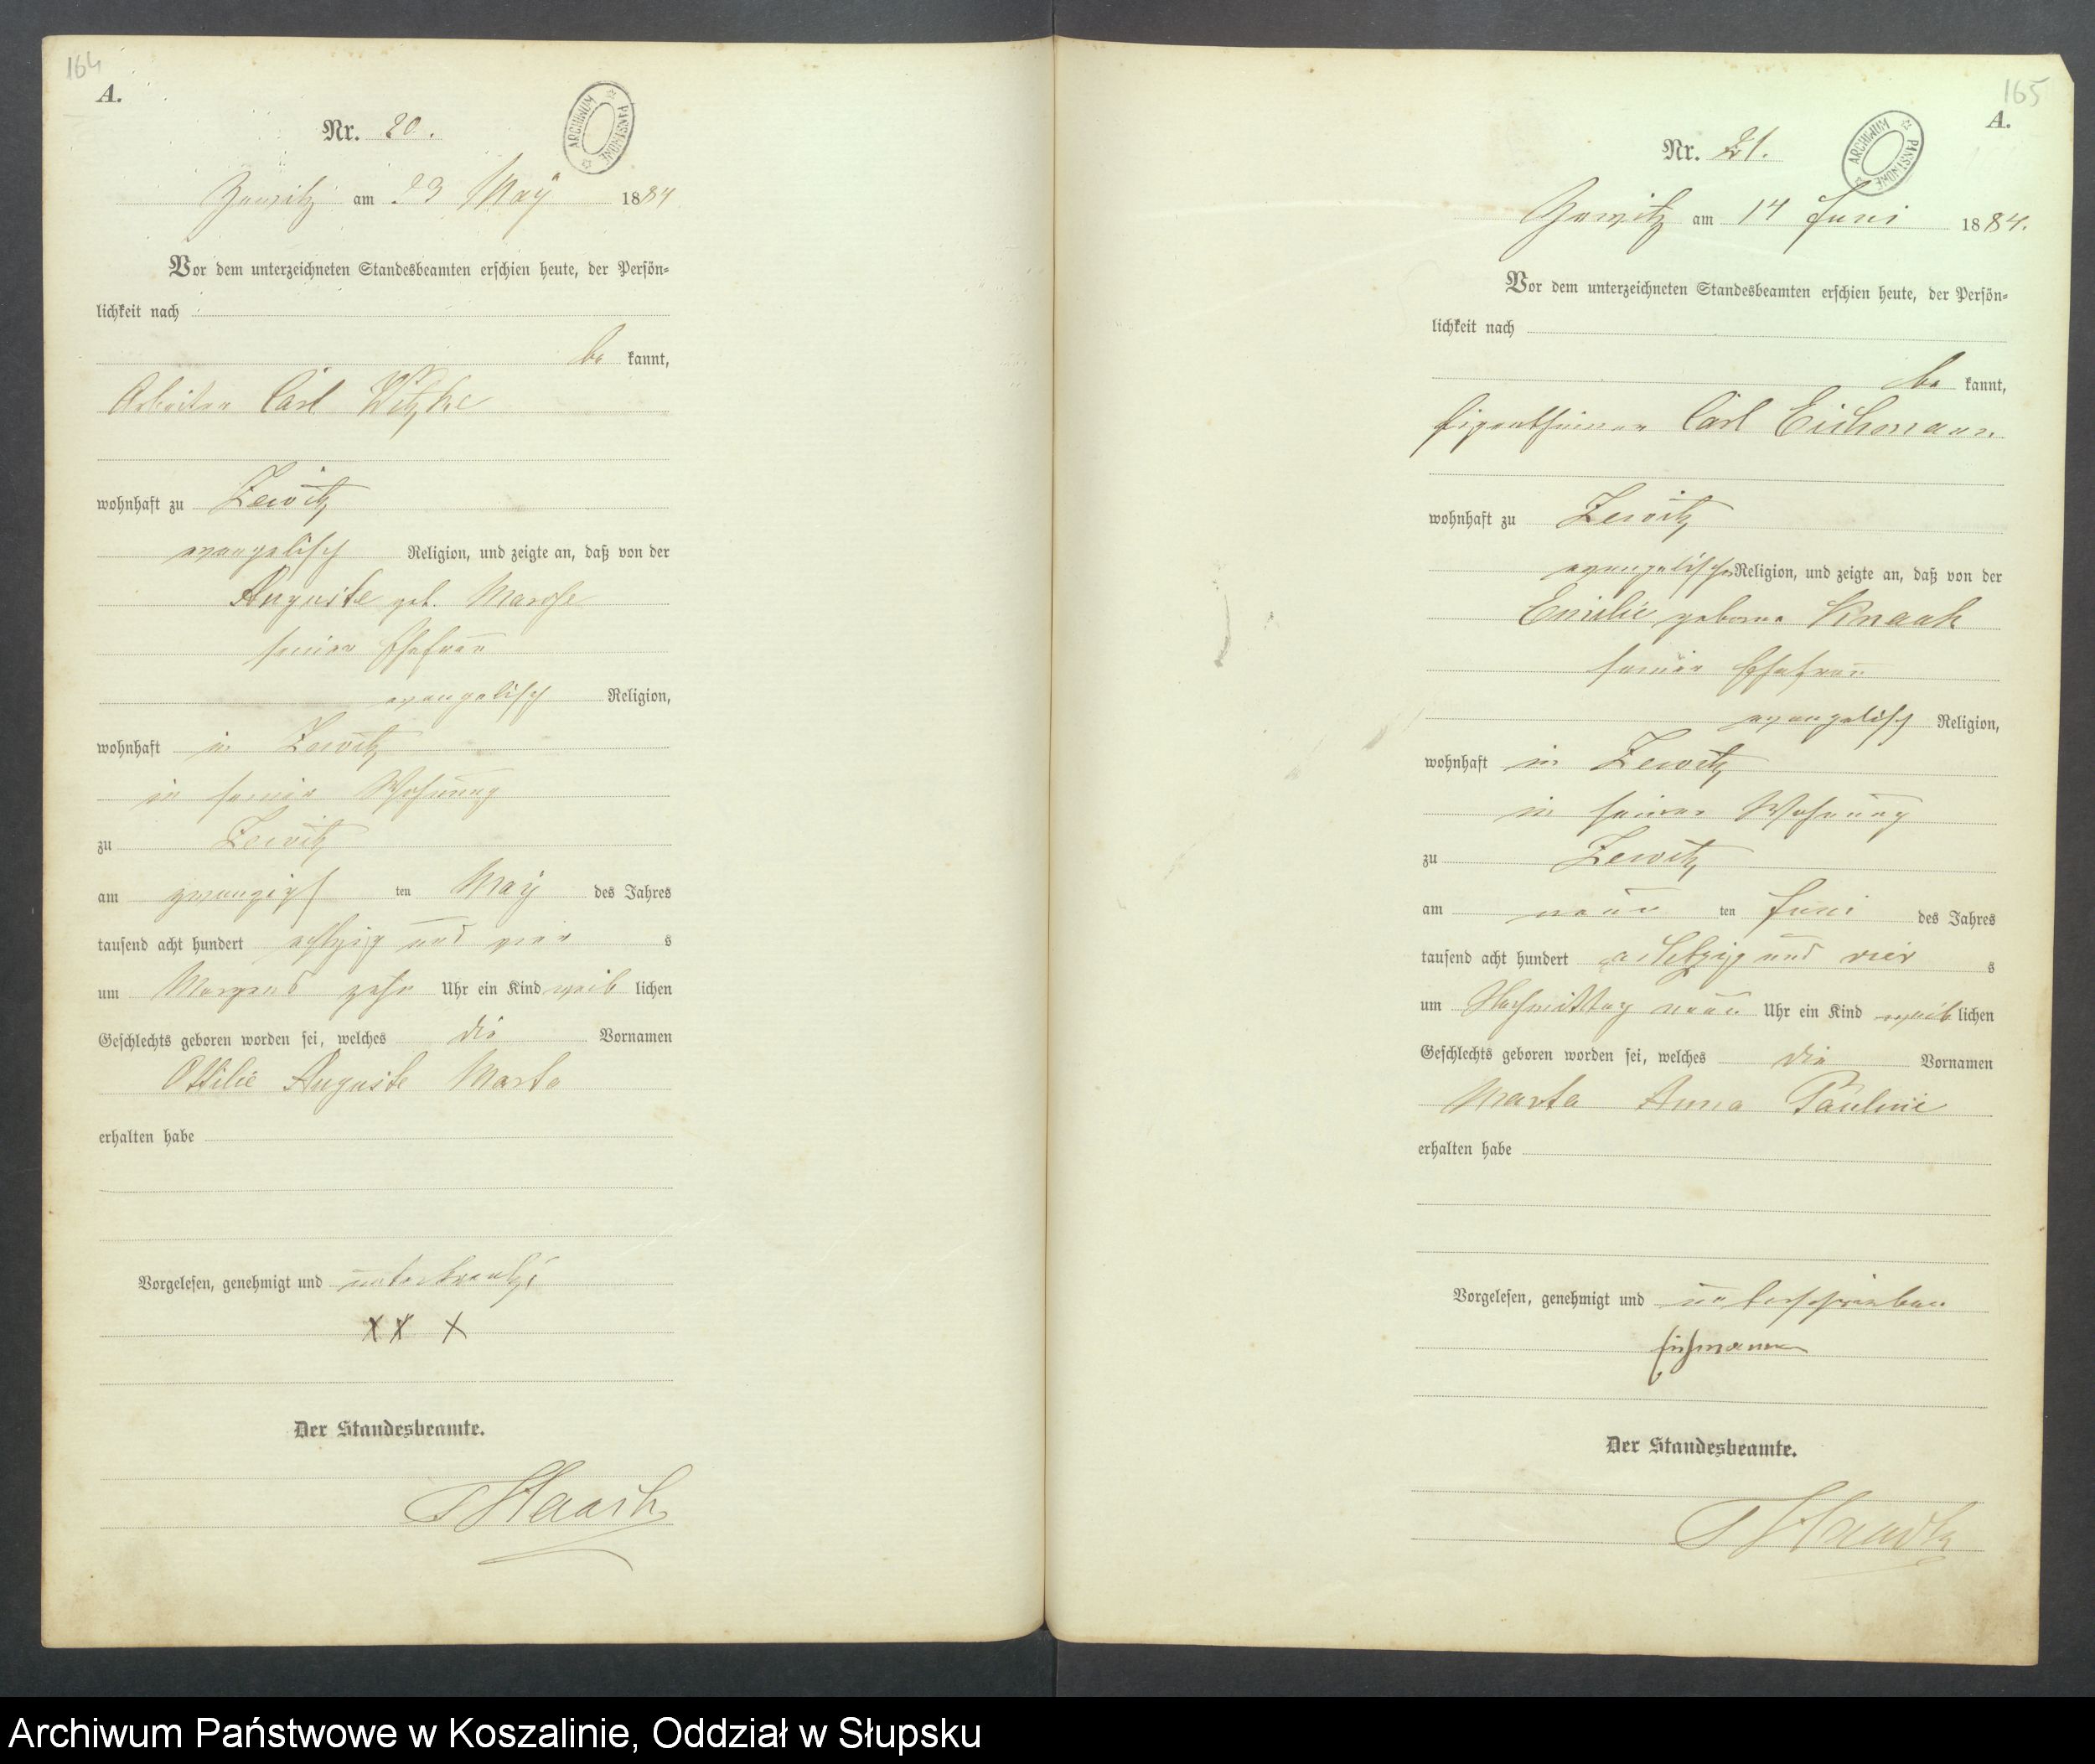 164
A.
Nr. 20.
ARCHIWUM PAŃSTWOWE
Zewitz am 23 May 1884
Vor dem unterzeichneten Standesbeamten erschien heute, der Persön-
lichkeit nach
be kannt,
Arbeiter Carl Witzke
wohnhaft zu Zewitz
evangelisch Religion, und zeigte an, daß von der
Auguste geb.
seiner Ehefrau
evangelisch Religion,
wohnhaft in Zewitz
in seiner Wohnung
zu Zewitz
am zwanzigs ten May des Jahres
tausend acht hundert achtzig und vier s
um Morgens zehn Uhr ein Kind weib lichen
Geschlechts geboren worden sei, welches die Vornamen
Ottilie Auguste Marta
erhalten habe
Vorgelesen, genehmigt und unterkreutzt
X X X
Der Standesbeamte.
165
A.
Nr. 21.
ARCHIWUM PAŃSTWOWE
Zewitz am 14 Juni 1884.
Vor dem unterzeichneten Standesbeamten erschien heute, der Persön-
lichkeit nach
be kannt,
Eigenthümer Carl Eichmann
wohnhaft zu Zewitz
evangelischer Religion, und zeigte an, daß von der
Emilie geborne Knaak
seiner Ehefrau
evangelisch Religion,
wohnhaft in Zewitz
in seiner Wohnung
zu Zewitz
am neun ten Juni des Jahres
tausend acht hundert achtzig und vier s
um Nachmittag neun Uhr ein Kind weib lichen
Geschlechts geboren worden sei, welches die Vornamen
Marta Anna Pauline
erhalten habe
Vorgelesen, genehmigt und unterschrieben
Eichmann
Der Standesbeamte.
Archiwum Państwowe w Koszalinie, Oddział w Słupsku